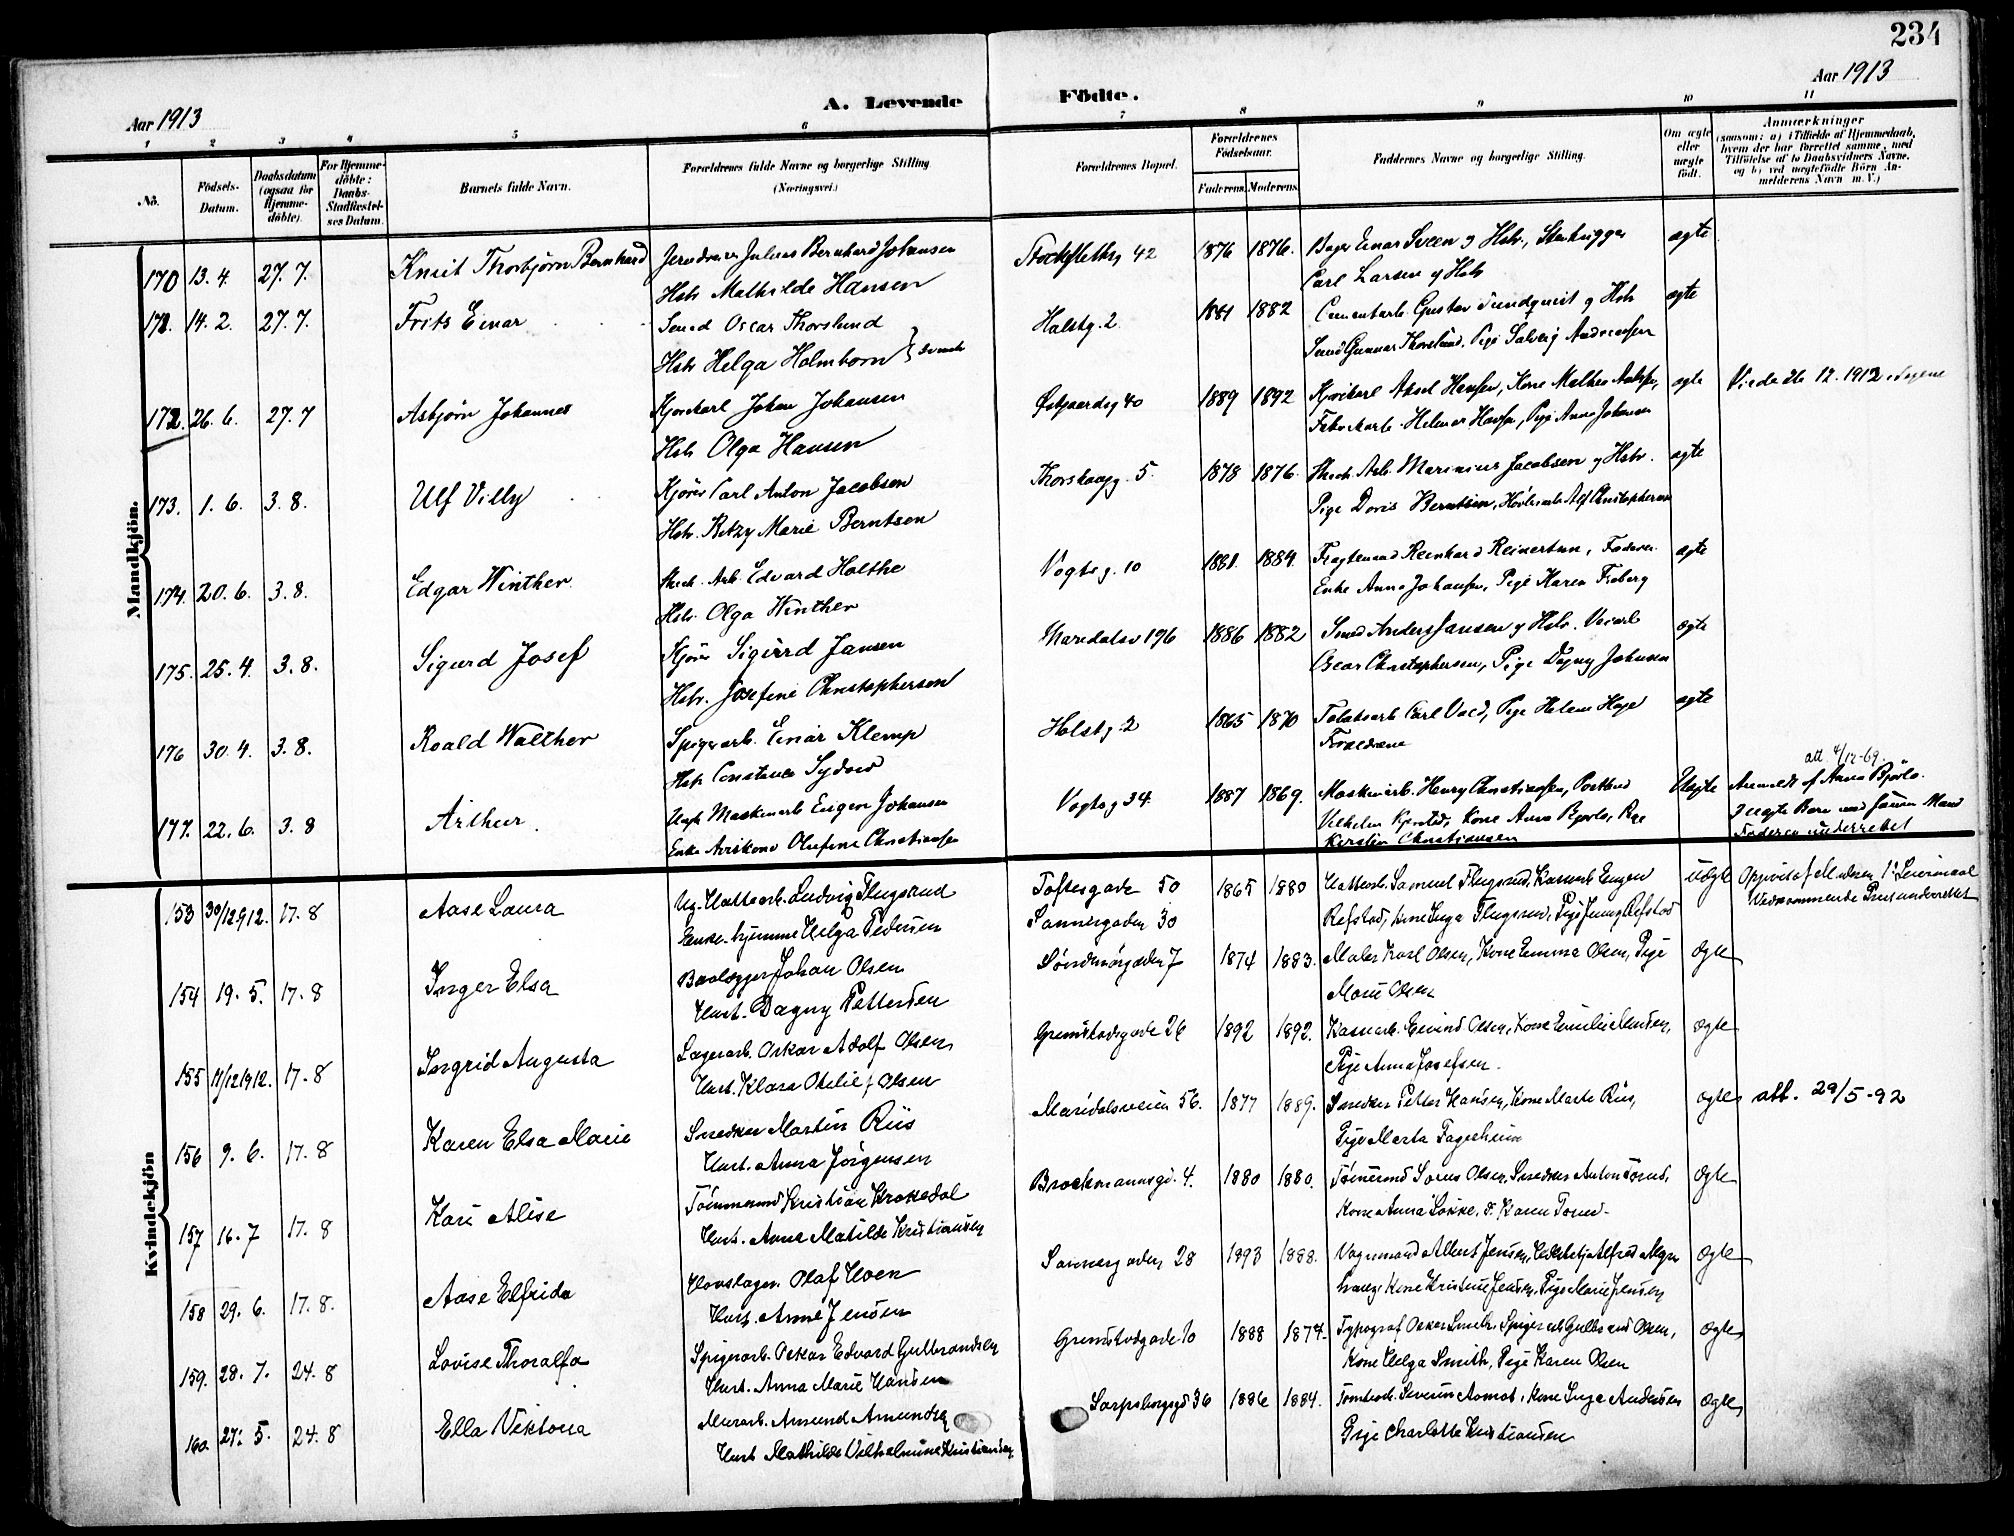 234
Aar 1913
A. Levende Födte.
Aar 1913
1 2 3 4 5 6 7 8 9 10 11
No.
Födsels-Datum.
Daabsdatum (ogsaa for Hjemme-döbte).
For Hjemme-döbte: Daabs-Stadfæstel-ses Datum.
Barnets fulde Navn.
Forældrenes fulde Navne og borgerlige Stilling (Næringsvei.)
Forældrenes Bopæl.
Forældrenes Födselsaar.
Faderens. Moderens.
Faddernes Navne og borgerlige Stilling.
Om ægte eller uægte födt.
Anmærkninger
(saasom: a) i Tilfælde af Hjemmedaab, hvem der har forrettet samme, med Tilföielse af to Daabsvidners Navne, og b) ved uægtefödte Börn Anmelderens Navn m. V.)
Mandkjön.
170 13.4. 27.7. Knut Thorbjørn Bernhard Jerndreier Julius Bernhard Johansen Stockflethsg 42 1876 1876. Bager Einar Sveen og Hstr., Stenhugger ægte
Hstr Mathilde Hansen Carl Larsen og Hstr
171. 14.2. 27.7. Frits Einar Smed Oscar Thorslund Holstg. 2. 1881 1882 Cementarb. Gustav Sundquist og Hstr ægte
Hstr Helga Holmborn } Smed Gunnar Thorslund, Pige Solveig Andreassen
172. 26.6. 27.7 Asbjørn Johannes Kjørekarl Johan Johansen Østgaardsg 40 1889 1892 Kjørekarl Aksel Hansen, Kone Mathea ægte Viede 26 12. 1912
Hstr Olga Hansen Fabrikarb. Helmer Hansen, Pige Anna Johansen
173. 1.6. 3.8. Ulf Villy Kjører Carl Anton Jacobsen Thorshaugg. 5. 1878 1876. Arb. Marinius Jacobsen og Hstr. ægte
Hstr. Betzy Marie Berntsen Pige Doris Berntsen, Høvlearb. Alf Christophersen
174. 20.6. 3.8. Edgar Winther Arb. Edvard Holthe Vogtsg. 10 1881. 1884. Fragtemand Reinhard Reinertsen, ægte
Hstr. Olga Winther Enke Anna Johansen, Pige Karen Froberg
175. 25.4. 3.8. Sigurd Josef Kjører Sigurd Jansen Maredalsv 196 1886 1882 Smed Anders Jansen og Hstr. ægte
Hstr. Josefine Christophersen Oscar Christophersen, Pige Dagny Johansen
176 30.4. 3.8. Roald Walther Spigerarb. Einar Klemp Holstg. 2 1865 1870 Tobaksarb. Carl Vold, Pige Helene ægte
Hstr Constance Forældrene
177. 22.6. 3.8 Arthur. Ungk Maskinarb Eugen Johansen Vogtsg 34. 1887 1869. Maskinarb. Henry Christiansen, Postbud Uægte att 4/12-69. Anmeldt af Anna Bjørlo.
Enke Avisekone Olufine Christiansen Vilhelm Kjersted, Kone Anna Bjørlo, Pige 3 uægte Barn med samme Mand
Kirstin Christiansen Faderen underrettet
Kvindekjön
153 30/12 912. 17.8 Aase Laura Ug. Hattearb. Ludvig Flugsrud Toftesgade 50 1865 1880 Hattearb. Samuel Flugsrud, Karnarb. Eugen uægte Opgivet af Moderen 1' Leiermaal
Enke. hjemme Helga Pedersen Sannergaden 30 Refstad, Kone Inga Flugsrud, Pige Jenny Refstad Vedkommende Prest underrettet
154 19.5. 17.8 Inger Elsa Brolægger Johan Olsen Søndmørgaden 7 1874 1883. Maler Karl Olsen, Kone Emma Olsen, Pige ægte
Hust. Dagny Pettersen Marie Olsen
155 11/12 1912. 17.8 Ingrid Augusta Lagerarb. Oskar Adolf Olsen Grimstadsgade 26 1892 1892. Karnarb. Eivind Olsen, Kone Emilie ægte
Hust. Klara Otelie f Olsen Pige Anna Josefsen.
156 9.6. 17.8 Karen Elsa Marie Snedker Martin Riis Maridalsveien 56. 1877 1889. Snedker Petter Hansen, Kone Marte Riis, ægte att. 29/5-92
Hust. Anna Jørgensen Pige Marta Fagerheim
157 16.7 17.8 Kari Alise Tømmermd Kristian Krokedal Brockmannsgd. 4. 1880 1880. Tømmermd Sorus Olsen, Snedker Anton ægte
Hust. Anna Matilde Kristiansen Kone Anna Løkke, f. Karen
158 29.6. 17.8. Aase Elfrida Hovslager Olaf Hoen Sannergaden 28 1893 1888. Vognmand Albert Jensen, Alfred ægte
Hust. Anne Jensen Kone Kristine Jensen, Pige Marie Jensen
159. 28.7. 24.8 Lovise Thoralfa Spigerarb. Oskar Edvard Gulbrandsen Grimstadgade 10 1888 1874. Typograf Oskar Smith, Spigerarb Gulbrand Olsen, ægte
Hust. Anna Marie Hansen Kone Helga Smith, Pige Karen Olsen
160. 27.5. 24.8 Ella Viktoria Murarb. Amund Amundsen Sarpsborggd 36 1886 1884. Tomtearb. Severin Aamot, Kone Inga Andersen ægte
Hust Mathilde Vilhelmine Kristiansen Pige Charlotte Kristiansen